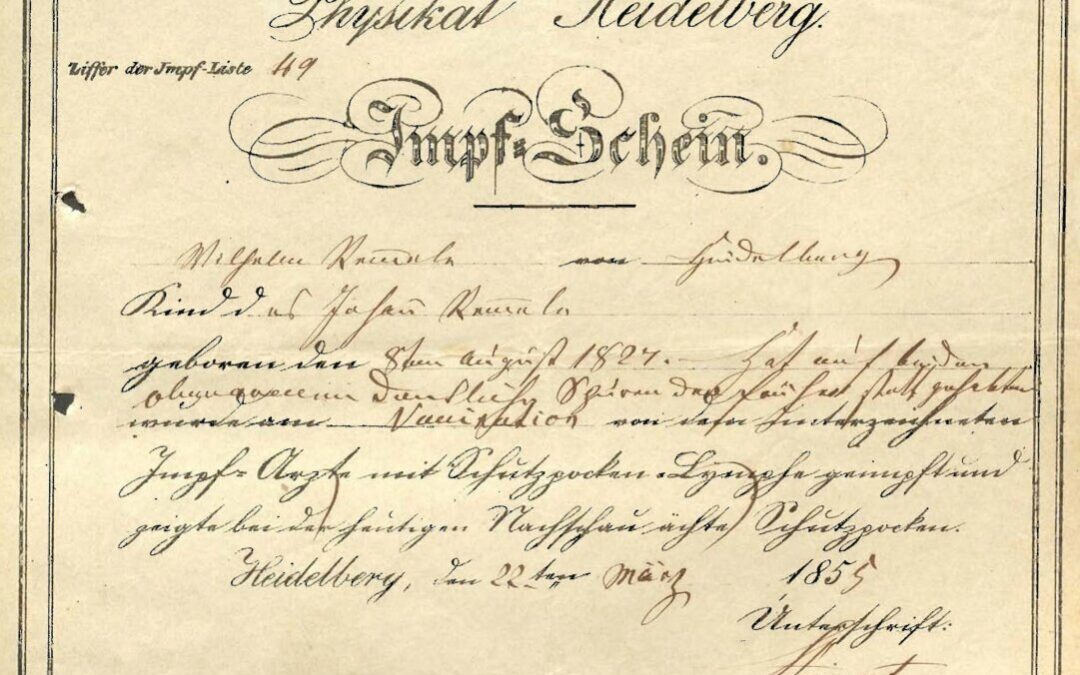 Physikat Heidelberg.
Ziffer der Impf-Liste 49
Impf-Schein.
Wilhelm Rem̅ele von Heidelberg
Kind des Johan̅ Rem̅ele
geboren den 8ten August 1827. - Hat auf beiden
deutliche Spuren der früher statt gehabten
wurde am Vaccination von dem Unterzeichneten
Impf-Arzte mit Schutzpocken-Lymphe geimpft und
zeigte bei der heutigen Nachschau ächte Schutzpocken.
Heidelberg, den 22ten März 1855
Unterschrift: